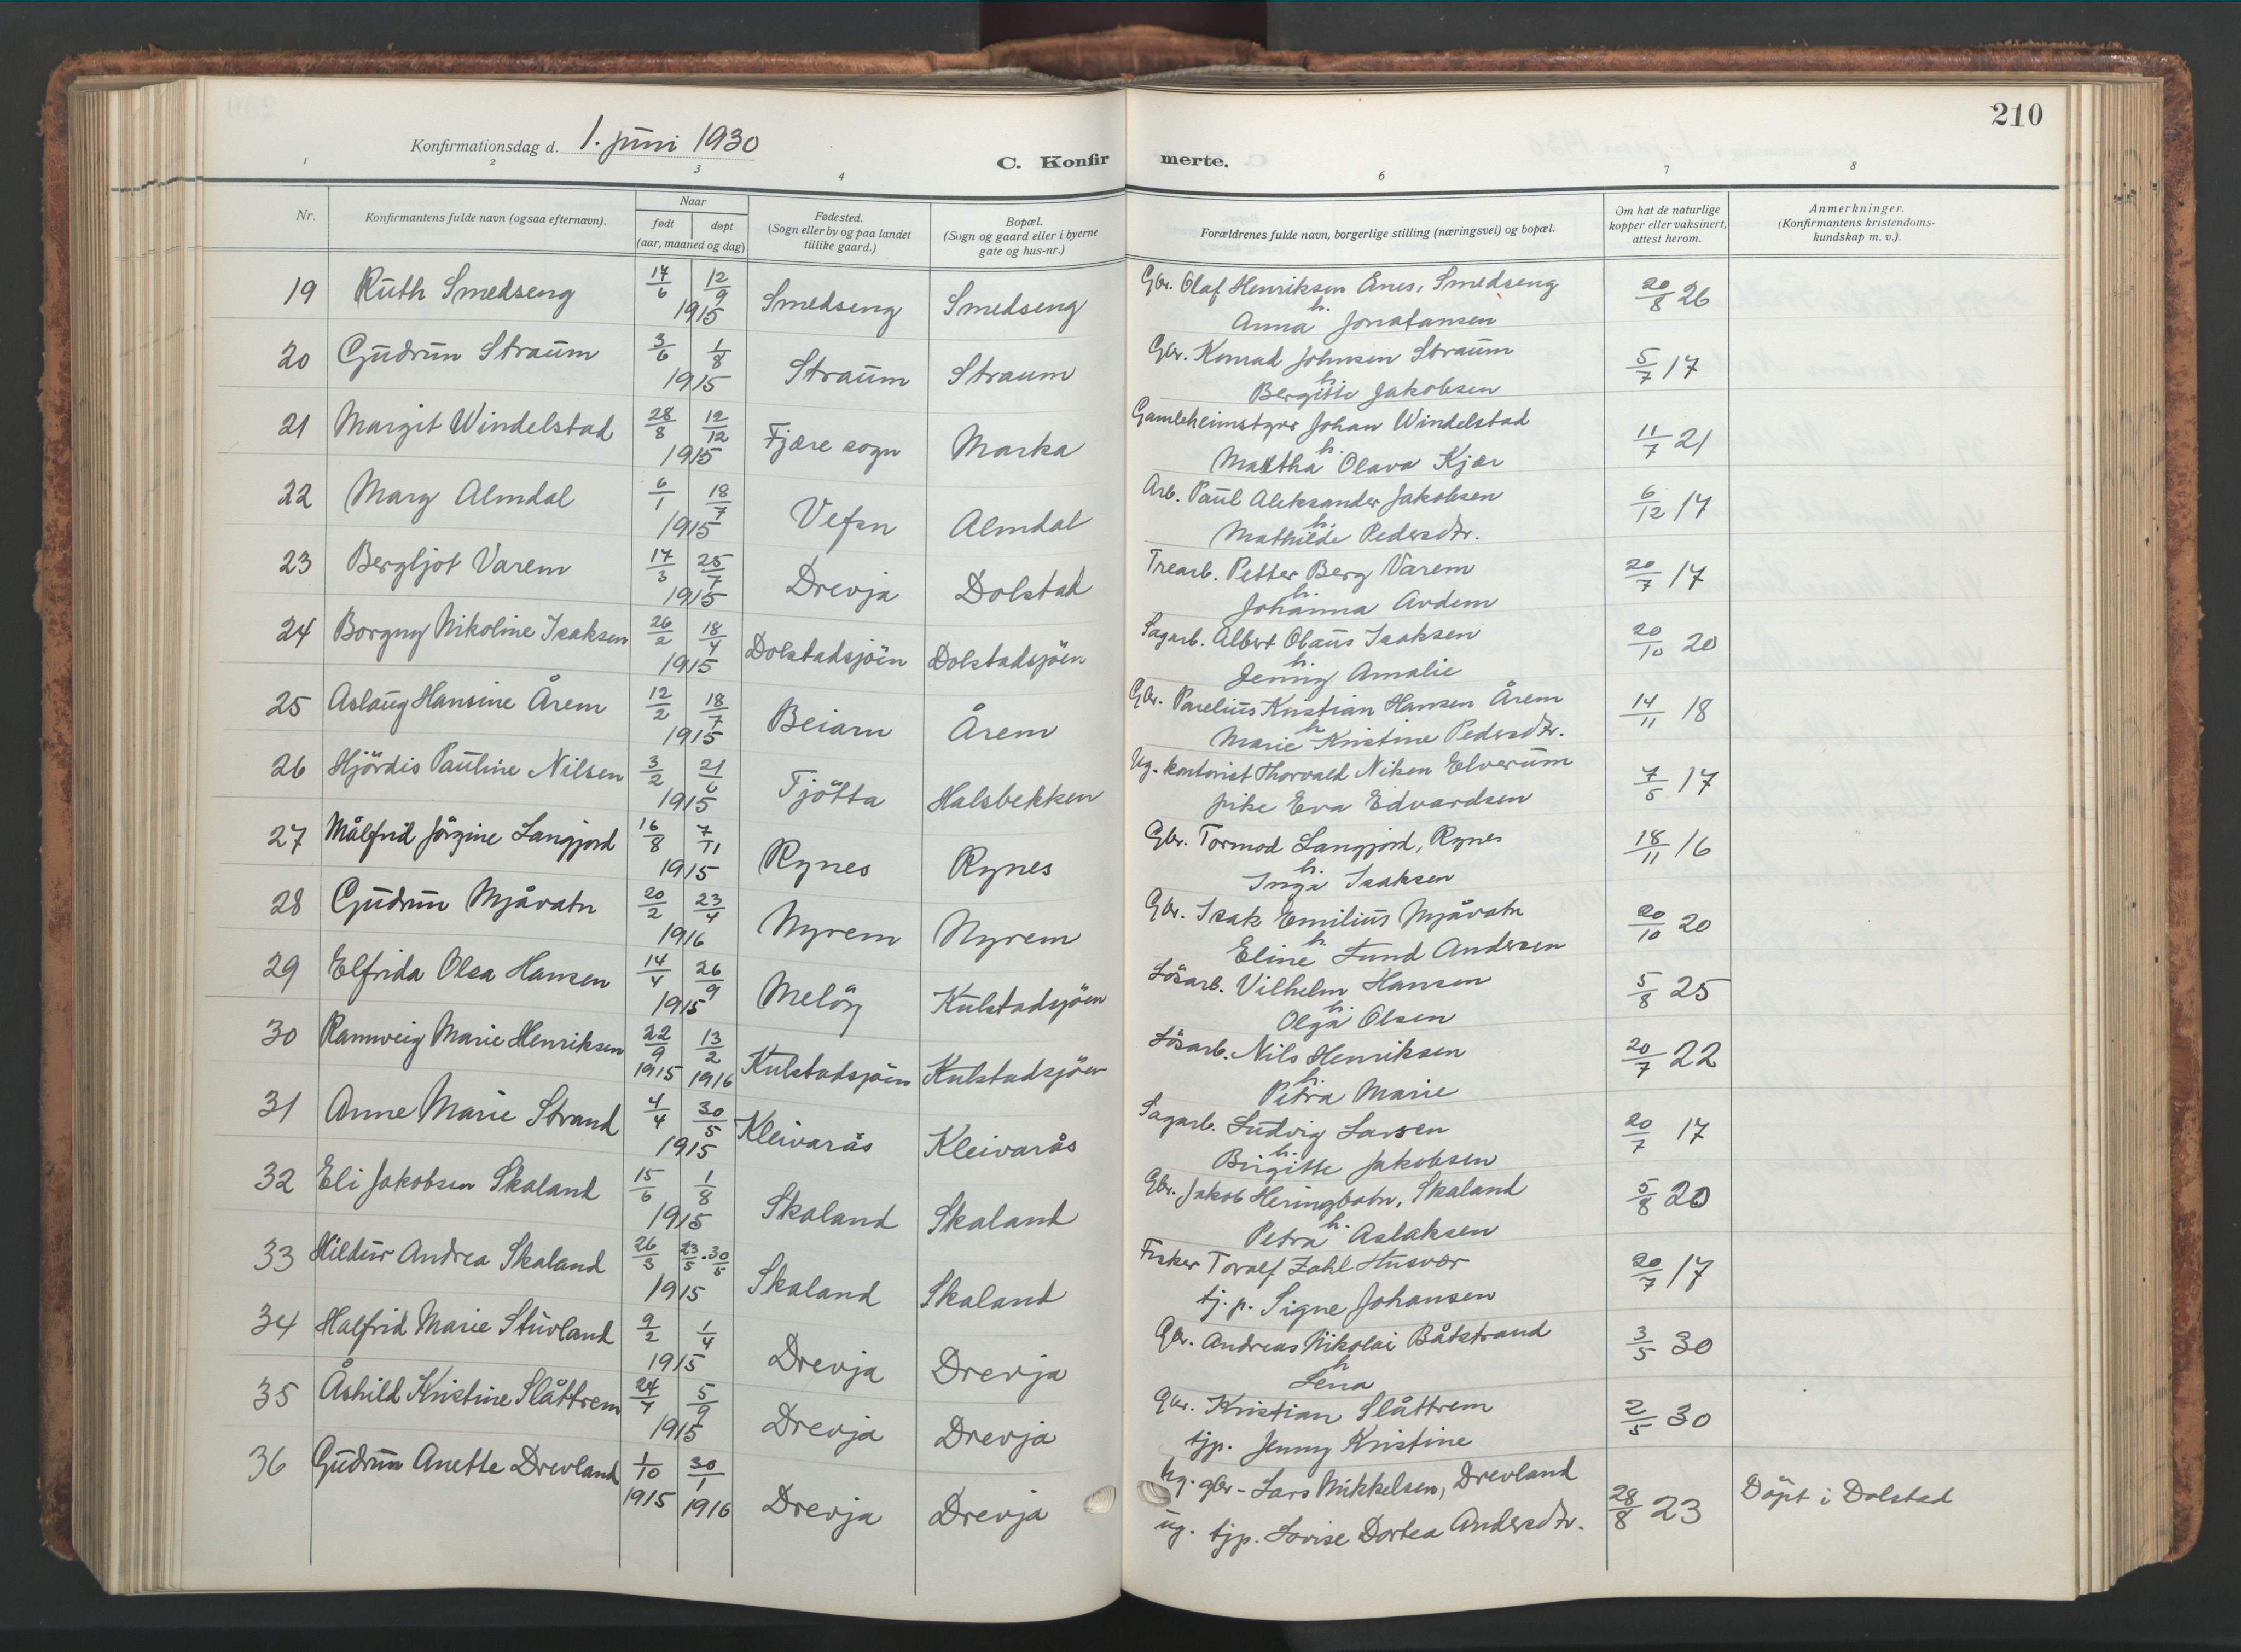 210
Konfirmationsdag d. 1. juni 1930
C. Konfirmerte.
1 2 3 4 6 7 8
Nr. Konfirmantens fulde navn (ogsaa efternavn). Naar født døpt (aar, maaned og dag) Fødested. (Sogn eller by og paa landet tillike gaard.) Bopæl. (Sogn og gaard eller i byerne gate og hus-nr.) Forældrenes fulde navn, borgerlige stilling (næringsvei) og bopæl. Om hat de naturlige kopper eller vaksinert, attest herom. Anmerkninger. (Konfirmantens kristendomskundskap m. v.).
19 Ruth Smedseng 17/6 12/9 1915 Smedseng Smedseng Gbr. Olaf Henriksen Enes, Smedseng 20/8 26
h. Anna Jonatansen
20 Gudrun Straum 3/6 1/8 1915 Straum Straum Gbr. Konrad Johnsen Straum 5/7 17
h. Bergitte Jakobsen
21 Margit Windelstad 28/8 12/12 1915 Fjære sogn Marka Gamleheimstyrer Johan Windelstad 11/7 21
h. Martha Olava Kjær
22 Marg Almdal 6/1 18/7 1915 Vefsn Almdal Arb. Paul Aleksander Jakobsen 6/12 17
h. Mathilde Pedersdtr.
23 Bergljot Varem 17/3 25/7 1915 Drevja Dolstad Trearb. Petter Berg Varem 20/7 17
h. Johanna Ardem
24 Borgny Nikoline Isaksen 26/2 18/4 1915 Dolstadsjöen Dolstadsjöen Sagarb. Albert Olaus Isaksen 20/10 20
h. Jenny Amalie
25 Aslaug Hansine Årem 12/2 18/7 1915 Beiarn Årem Gbr. Parelius Kristian Hansen Årem 14/11 18
h Marie Kristine Pedersdtr.
26 Hjördis Pauline Nilsen 3/2 21/6 1915 Tjötta Halsbekken Ug. kontorist Thorvald Nilsen Elverum 7/5 17
pike Eva Edvardsen
27 Målfrid Jörgine Langjord 16/8 7/11 1915 Rynes Rynes Gbr. Tormod Langjord, Rynes 18/11 16
h. Inga Isaksen
28 Gudrun Mjåvatn 20/2 23/4 1916 Nyrem Nyrem Gbr. Isak Emilius Mjåvatn 20/10 20
h. Eline Lund Andersen
29 Elfrida Olea Hansen 14/4 26/9 1915 Melöy Kulstadsjöen Lösarb. Vilhelm Hansen 5/8 25
h. Olga Olsen
30 Rannveig Marie Henriksen 22/9 1915 13/2 1916 Kulstadsjöen Kulstadsjöen Lösarb. Nils Henriksen 20/7 22
h. Petra Marie
31 Anne Marie Strand 4/4 30/5 1915 Kleivarås Kleivarås Sagarb. Ludvig Larsen 20/7 17
h. Birgitte Jakobsen
32 Eli Jakobsen Skaland 15/6 1/8 1915 Skaland Skaland Gbr. Jakob Heringbotn, Skaland 5/8 20
h. Petra Aslaksen
33 Hildur Andrea Skaland 26/3 23/5 · 30/5 1915 Skaland Skaland Fisker Toralf Zahl Husvær 20/7 17
tj. p. Signe Johansen
34 Halfrid Marie Stuvland 9/2 1/4 1915 Drevja Drevja Gbr. Andreas Nikolai Båtstrand 3/5 30
h Lena
35 Åshild Kristine Slåttrem 24/7 5/9 1915 Drevja Drevja Gbr. Kristian Slåttrem 2/5 30
tjp. Jenny Kristine
36 Gudrun Anette Drevland 1/10 1915 30/1 1916 Drevja Drevja Ug. gbr - Lars Mikkelsen, Drevland 28/8 23 Döpt i Dolstad
ug. tjp. Lovise Dortea Andersdtr.